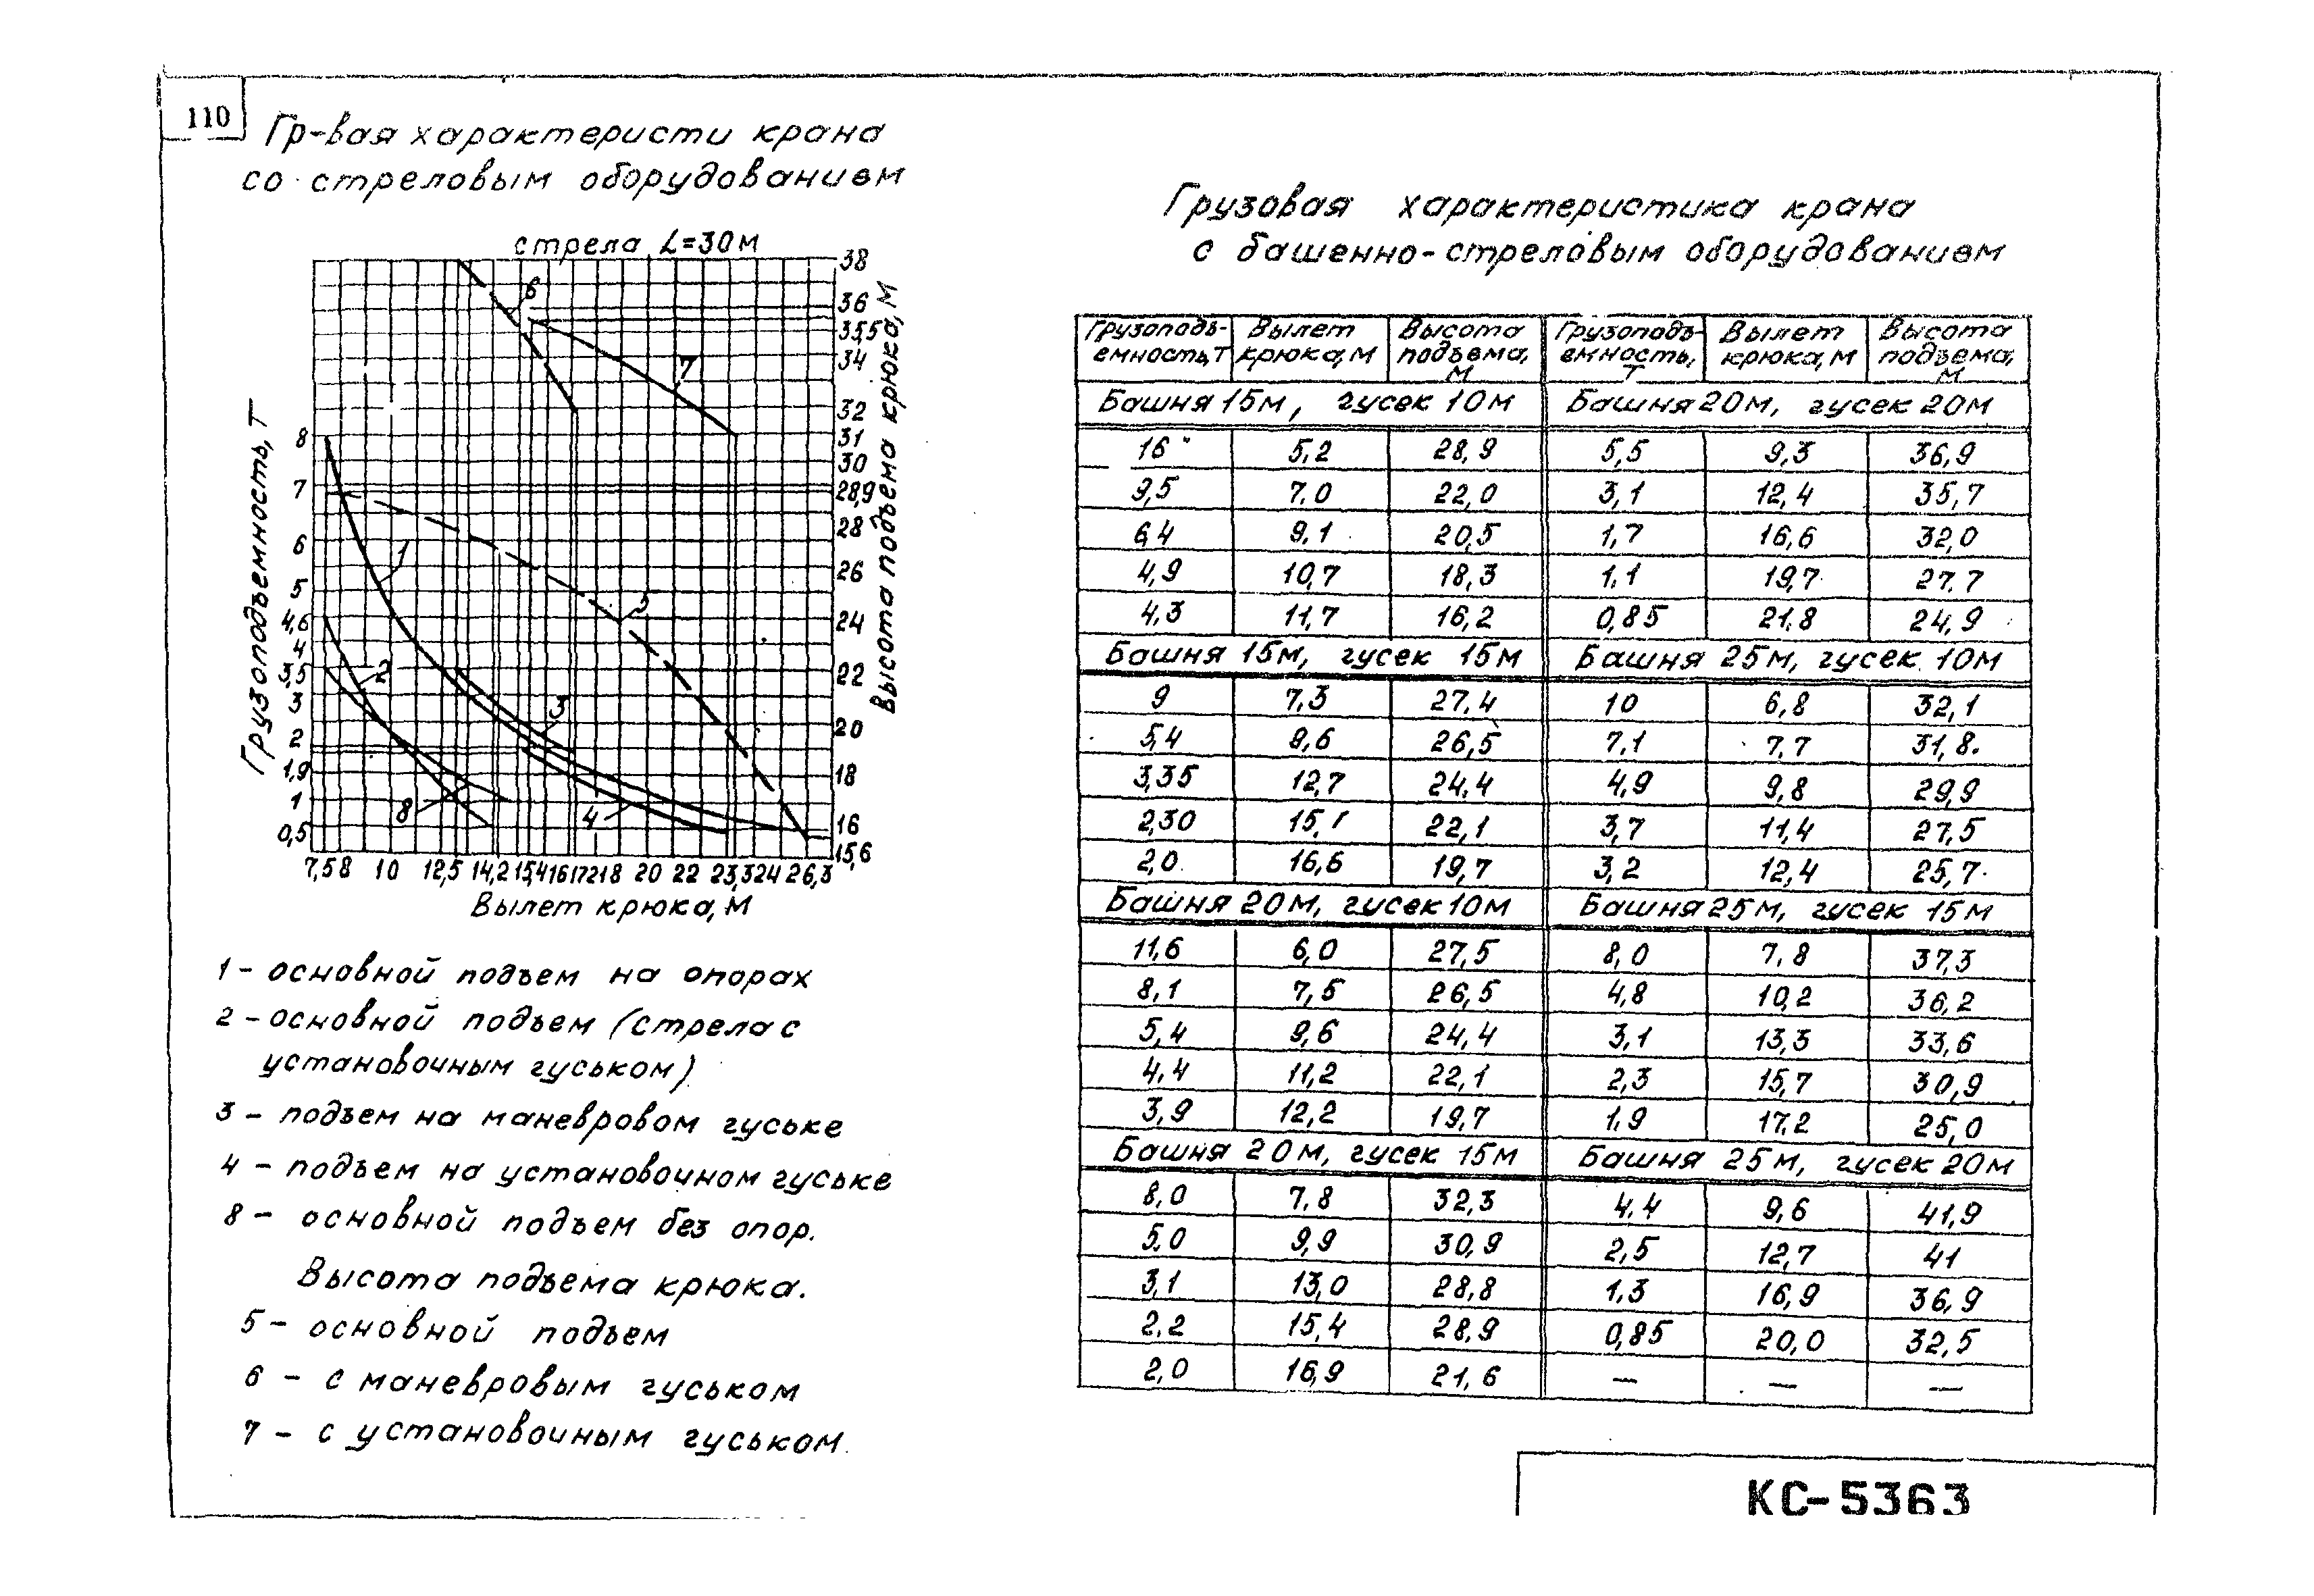 110
Гр-вая характеристи крана
со стреловым оборудованием
стрела L=30м
Грузоподъемность, Т
8
7
6
5
4,6
4
3,5
3
2
1,9
1
0,5
38
36
35,5
34
32
31
30
28,9
28
26
24
22
20
18
16
15,6
Высота подъема крюка, м
6
7
1
5
2
3
8
4
7,5 8 10 12,5 14,2 15,4 16 17,2 18 20 22 23,3 24 26,3
Вылет крюка, м
1 - основной подъем на опорах
2 - основной подъем (стрела с
установочным гуськом)
3 - подъем на маневровом гуське
4 - подъем на установочном гуське
8 - основной подъем без опор.
Высота подъема крюка.
5 - основной подъем
6 - с маневровым гуськом
7 - с установочным гуськом
Грузовая характеристика крана
с башенно-стреловым оборудованием
Грузоподъ- Вылет Высота Грузоподъ- Вылет Высота
емность, Т крюка, м подъема, емность, крюка, м подъема,
м Т м
Башня 15м, гусек 10м Башня 20м, гусек 20м
16 5,2 28,9 5,5 9,3 36,9
9,5 7,0 22,0 3,1 12,4 35,7
6,4 9,1 20,5 1,7 16,6 32,0
4,9 10,7 18,3 1,1 19,7 27,7
4,3 11,7 16,2 0,85 21,8 24,9
Башня 15м, гусек 15м Башня 25м, гусек 10м
9 7,3 27,4 10 6,8 32,1
5,4 9,6 26,5 7,1 7,7 31,8.
3,35 12,7 24,4 4,9 9,8 29,9
2,30 15,1 22,1 3,7 11,4 27,5
2,0 16,6 19,7 3,2 12,4 25,7
Башня 20м, гусек 10м Башня 25м, гусек 15м
11,6 6,0 27,5 8,0 7,8 37,3
8,1 7,5 26,5 4,8 10,2 36,2
5,4 9,6 24,4 3,1 13,3 33,6
4,4 11,2 22,1 2,3 15,7 30,9
3,9 12,2 19,7 1,9 17,2 25,0
Башня 20м, гусек 15м Башня 25м, гусек 20м
8,0 7,8 32,3 4,4 9,6 41,9
5,0 9,9 30,9 2,5 12,7 41
3,1 13,0 28,8 1,3 16,9 36,9
2,2 15,4 28,9 0,85 20,0 32,5
2,0 16,9 21,6 — — —
КС-5363